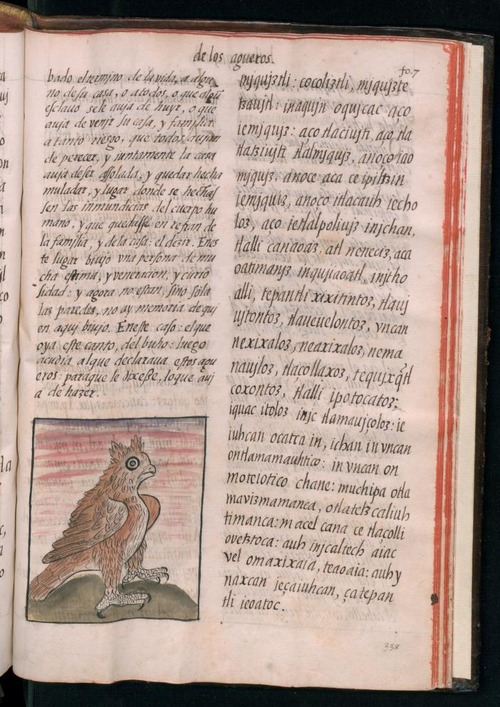 de los agueros.
fo. 7
bado el termino de la vida, a algu
no de su casa, o a todos, o que algũ
esclauo se le auja de huyr, o que
auja de venjr su casa, y familia
a tanto riesgo, que todos aujan
de perecer, y juntamente la casa
auja de ser asolada, y quedar hecha
muladar, y lugar donde se hechasẽ
sen las inmundicias del cuerpo hu
mano, y que quedasse en refran de
la familia, y de la casa: el dezir. En es
te lugar biujo vna persona de mu
cha estima, y veneracion, y curio
sidad: y agora no estan, sino solas
las paredes, no ay memoria de qui
en aquy biujo. En este caso: el que
oya este canto, del buho: luego
acudia al que declaraua estos agu
eros: para que le dixesse, lo que auj
a de hazer.
mjqujztli: cocoliztli, mjqujzte
tzaujtl: in aqujn oqujcac aço
ie mjqujz: aço itlaciujtz aço, itla
itlatziujti italmjqujz, anoço
mjqujz: anoce aca ce ipiltzin
ie mjqujz, anoço itlacauh iecho
loz, aço ietlalpoliujz injchan,
itlalli canaoaz: atl neneciz, aca
oatimanjz inqujiaoatl, injtho
alli, tepantli xixitintoz, tlauj
ujtontoz, tlaueuelontoz, vncan
nexixaloz, neaxixaloz, nema
naujloz, tlacotlaxoz, tequjxqujtl
coxontoz, tlalli ipotocatoz:
iquac itoloz injc tlamaujçoloz: ie
iuhcan ocatca in, ichan in vncan
ontlamamauhtico: in vncan on
moteiotico chane: muchipa otla
mavizmamanca, otlatetzcaliuh
timanca: macel cana ce tlaçolli
ovetztoca: auh injcaltech aiac
vel omaxixaia, teaoaia: auh y
naxcan ieçaiuhcan, çatepan
tli ieoatoc.
238